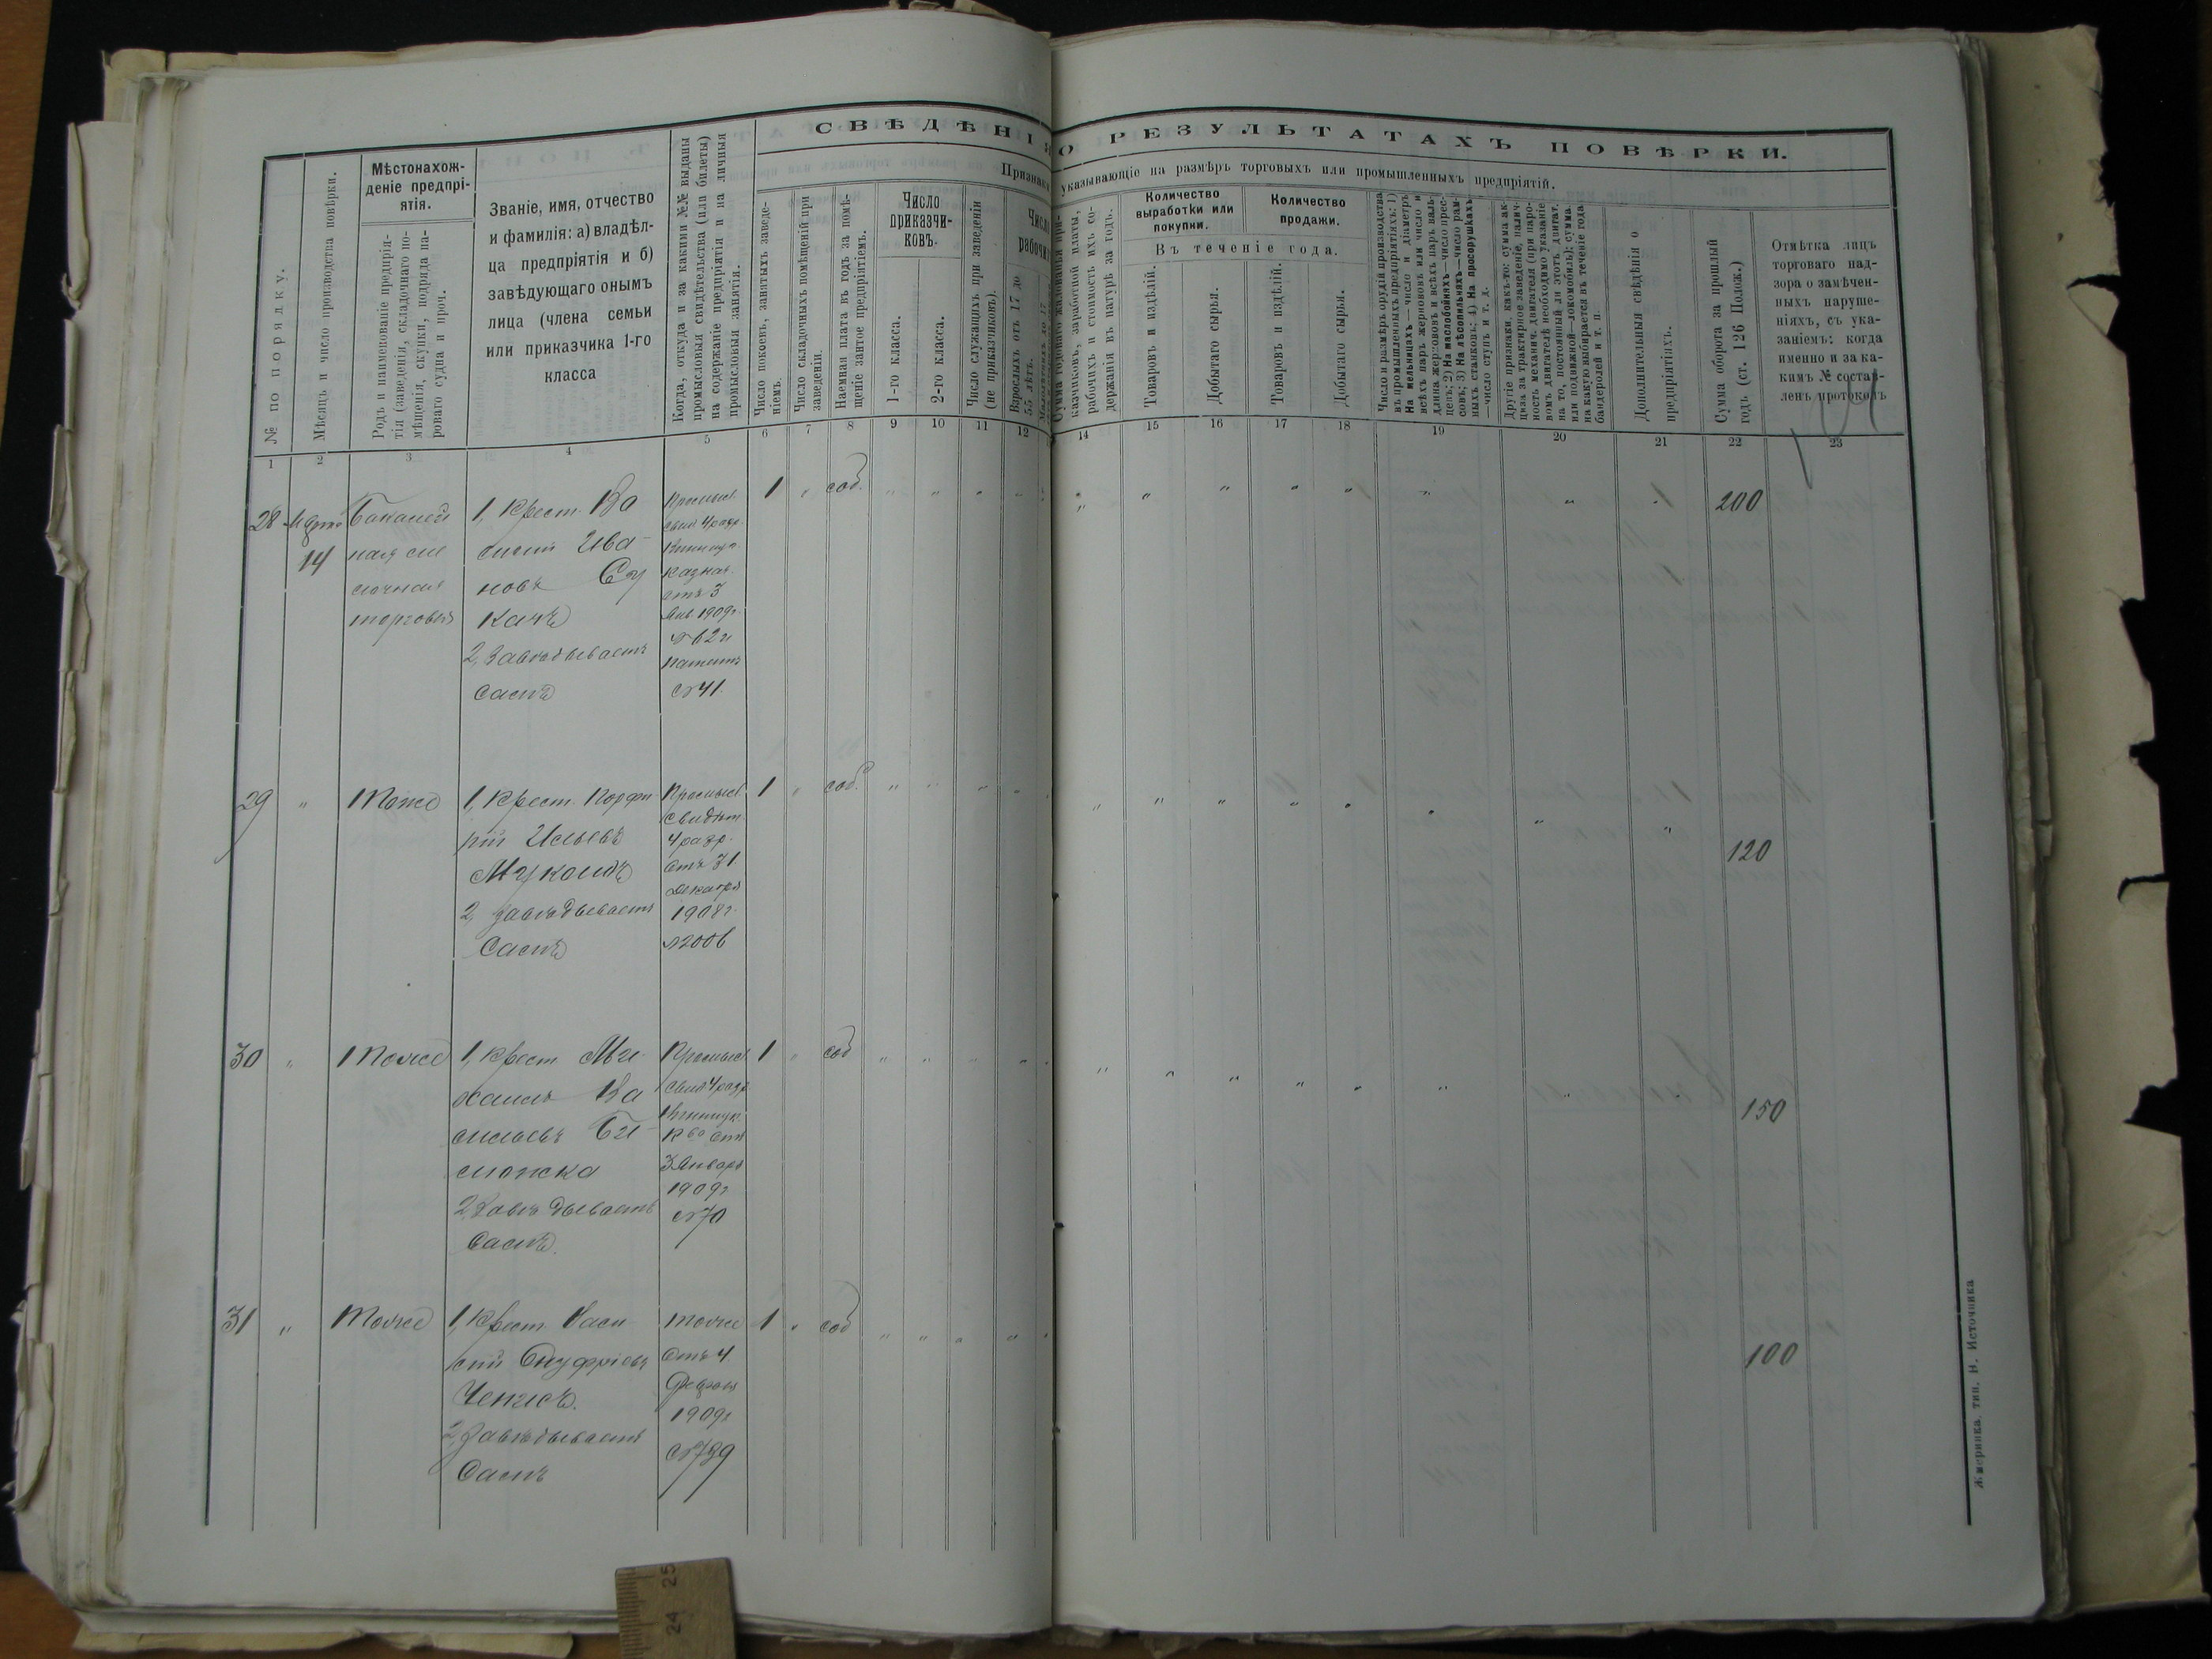 СВѢДѢНІЯ О РЕЗУЛЬТАТАХЪ ПОВѢРКИ.
Признаки, указывающіе на размѣръ торговыхъ или промышленныхъ предпріятій.
№ по порядку.
Мѣсяцъ и число производства повѣрки.
Мѣстонахож-
деніе предпрі-
ятія.
Родъ и наименованіе предпрія-
тія (заведенія, складочнаго по-
мѣщенія, скупки, подряда па-
роваго судна и проч.
Званіе, имя, отчество
и фамилія: а) владѣл-
ца предпріятія и б)
завѣдующаго онымъ
лица (члена семьи
или приказчика 1-го
класса
Когда, откуда и за какими №№ выданы
промысловыя свидѣтельства (или билеты)
на содержаніе предпріятія и на личныя
промысловыя занятія.
Число покоевъ, занятыхъ заведе-
ніемъ.
Число складочныхъ помѣщеній при
заведеніи.
Наемная плата въ годъ за помѣ-
щеніе занятое предпріятіемъ.
Число
приказчи-
ковъ.
1-го класса.
2-го класса.
Число служащихъ при заведеніи
(не приказчиковъ).
Число
рабочихъ
Взрослыхъ отъ 17 до
55 лѣтъ.
казчиковъ, заработной платы,
рабочихъ и стоимость ихъ со-
держанія въ натурѣ за годъ.
Количество
выработки или
покупки.
Количество
продажи.
Въ теченіе года.
Товаровъ и издѣлій.
Добытаго сырья.
Товаровъ и издѣлій.
Добытаго сырья.
Число и размѣръ орудій производства
въ промышленныхъ предпріятіяхъ: 1)
На мельницахъ—число и діаметръ
всѣхъ паръ жернововъ или число и
длина жернововъ и всѣхъ паръ валь-
цевъ; 2) На маслобойняхъ—число прес-
совъ; 3) На лѣсопильняхъ—число рам-
ныхъ станковъ; 4) На просорушкахъ
—число ступъ и т. д.
Другіе признаки, какъ-то: сумма ак-
циза за трактирное заведеніе, налич-
ность механич. двигателя (при паро-
вомъ двигателѣ необходимо указаніе
на то, постоянный ли этотъ двигат.
или подвижной—локомобиль); сумма
на какую выбирается въ теченіе года
бандеролей и т. п.
Дополнительныя свѣдѣнія о
предпріятіяхъ.
Сумма оборота за прошлый
годъ (ст. 126 Полож.)
Отмѣтка лицъ
торговаго над-
зора о замѣчен-
ныхъ наруше-
ніяхъ, съ ука-
заніемъ: когда
именно и за ка-
кимъ № состав-
ленъ протоколъ
1 2 3 4 5 6 7 8 9 10 11 12 14 15 16 17 18 19 20 21 22 23
28 Марта Бакалей 1, Крест. Ва Промысл. 1 „ соб. „ „ „ „ „ „ „ „ „ „ „ „ 200
14 ная ме силий Ива- свид. 4 разр.
лочная новъ Су
торговля качъ
казнач.
отъ 3
Янв. 1909 г.
№ 62 и
патентъ
№ 41.
2, Завѣдываетъ
самъ
29 „ Тоже 1, Крест. Порфи Промысл. 1 „ соб. „ „ „ „ „ „ „ „ „ „ „ „ 120
рій Ильевъ Свидѣт.
4 разр.
отъ 31
Декабря
1908 г.
№ 2006
2, завѣдываетъ
Самъ
30 „ Тоже 1, Крест Ми- Промысл 1 „ соб „ „ „ „ „ „ „ „ „ „ „ „ 150
хаилъ Ва свид 4 разр
сильевъ Би-
ложка
К во отъ
3 Января
1909 г
№ 70
2, Завѣдываетъ
Самъ.
31 „ Тоже 1, Крест. Васи тоже 1 „ соб „ „ „ „ „ 100
лій Онуфріевъ отъ 4
Февраля
1909 г
№ 789
2, Завѣдываетъ
Самъ
Жмеринка, тип. Н. Источника
24 25